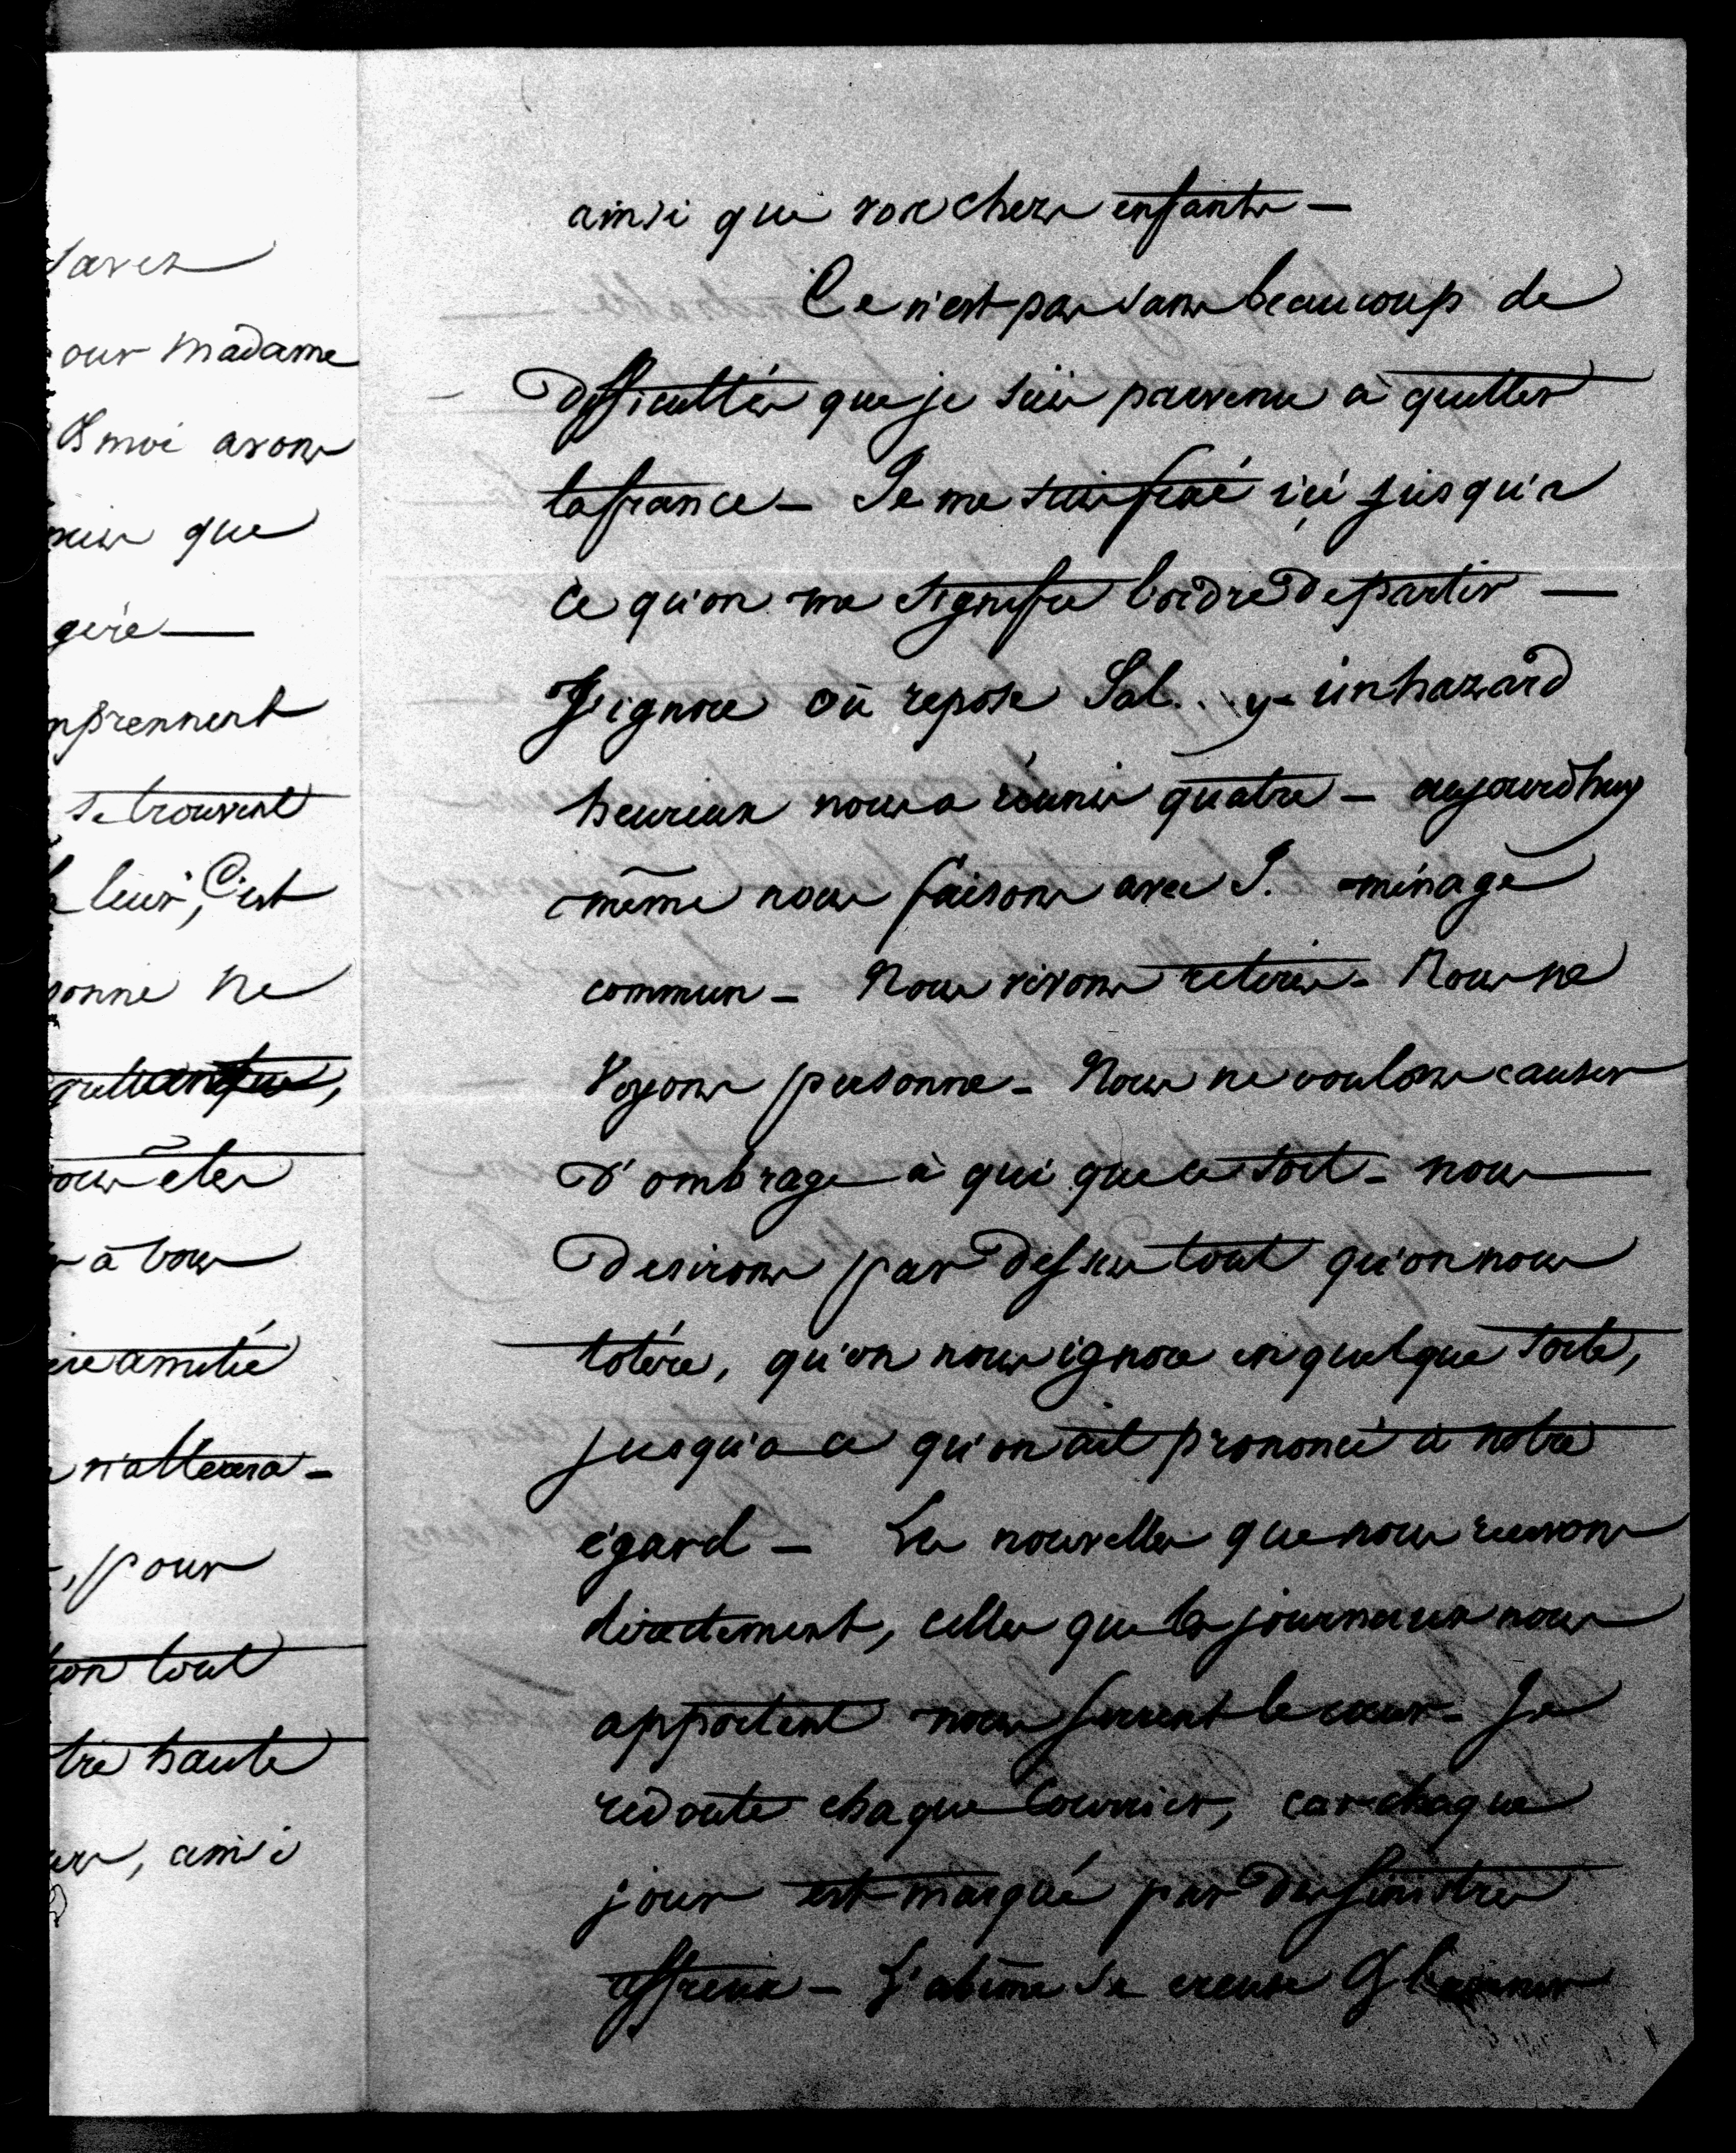 savez
our Madame
& moi avons
que
gère —
mprennent
se trouvent
leur, C'est
sonne ne
ous êtes
à vous
ère amitié
n'altérera —
, pour
ion tout
tre haute
, ainsi
ainsi que vos chers enfants —
Ce n'est pas sans beaucoup de
difficultés que je suis parvenu à quitter
la france — Je me suis fixé ici jusqu'à
ce qu'on me signifie l'ordre de partir —
J'ignore où repose Sal...y - un hazard
heureux nous a réunis quatre — aujourd'huy
même nous faisons avec S. ménage
commun — Nous vivons retirés — Nous ne
Voyons personne — Nous ne voulons causer
D'ombrage à qui que ce soit — nous
Desirons par dessus tout qu'on nous
tolère, qu'on nous ignore en quelque sorte,
jusqu'à ce qu'on ait prononcé à notre
égard — Les nouvelles que nous recevons
directement, celles que les journaux nous
apportent nous serrent le cœur — Je
redoute chaque Courrier, car chaque
jour est marqué par des sinistres
affreux — L'abîme se creuse &